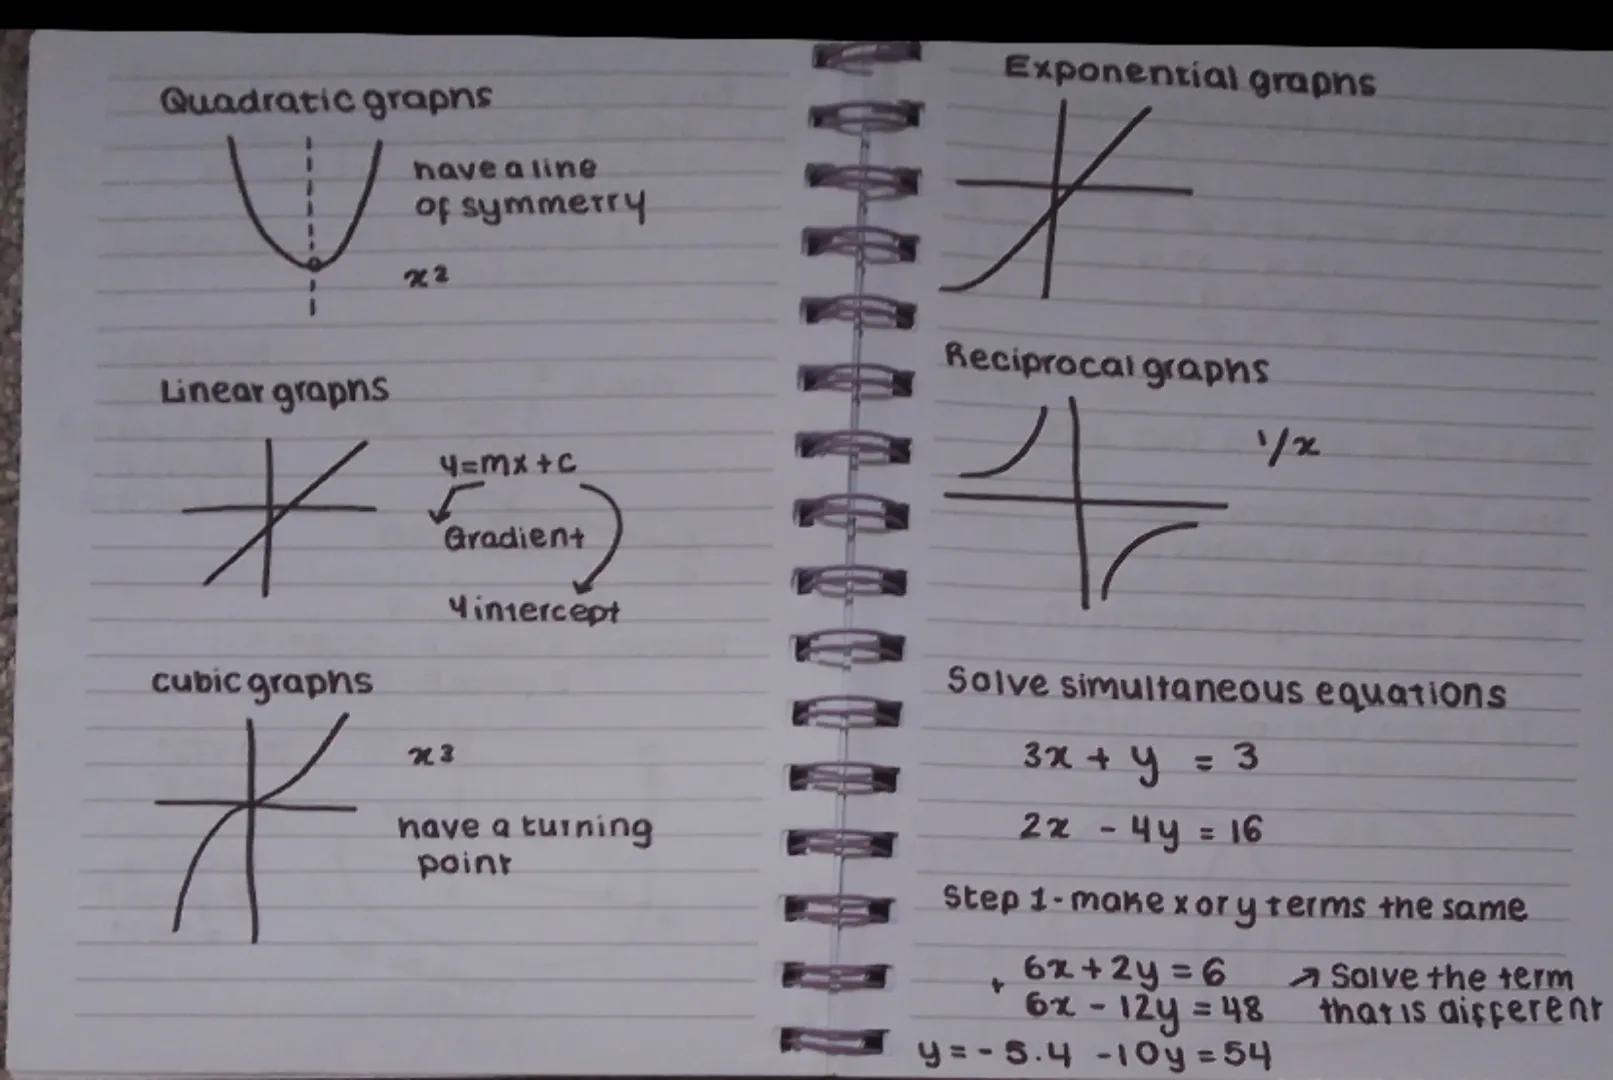 Quadratic graphs
have a line
of symmetry
x²
Linear graphs
y=mx+c
Gradient
y intercept
cubic graphs
x³
have a turning
point
Exponential graphs
Reciprocal graphs
1/x
Solve simultaneous equations
3x + y = 3
2x - 4y = 16
Step 1 - make x or y terms the same
+ 6x + 2y = 6 → Solve the term
6x - 12y = 48 that is different
y = -5.4 -10y = 54